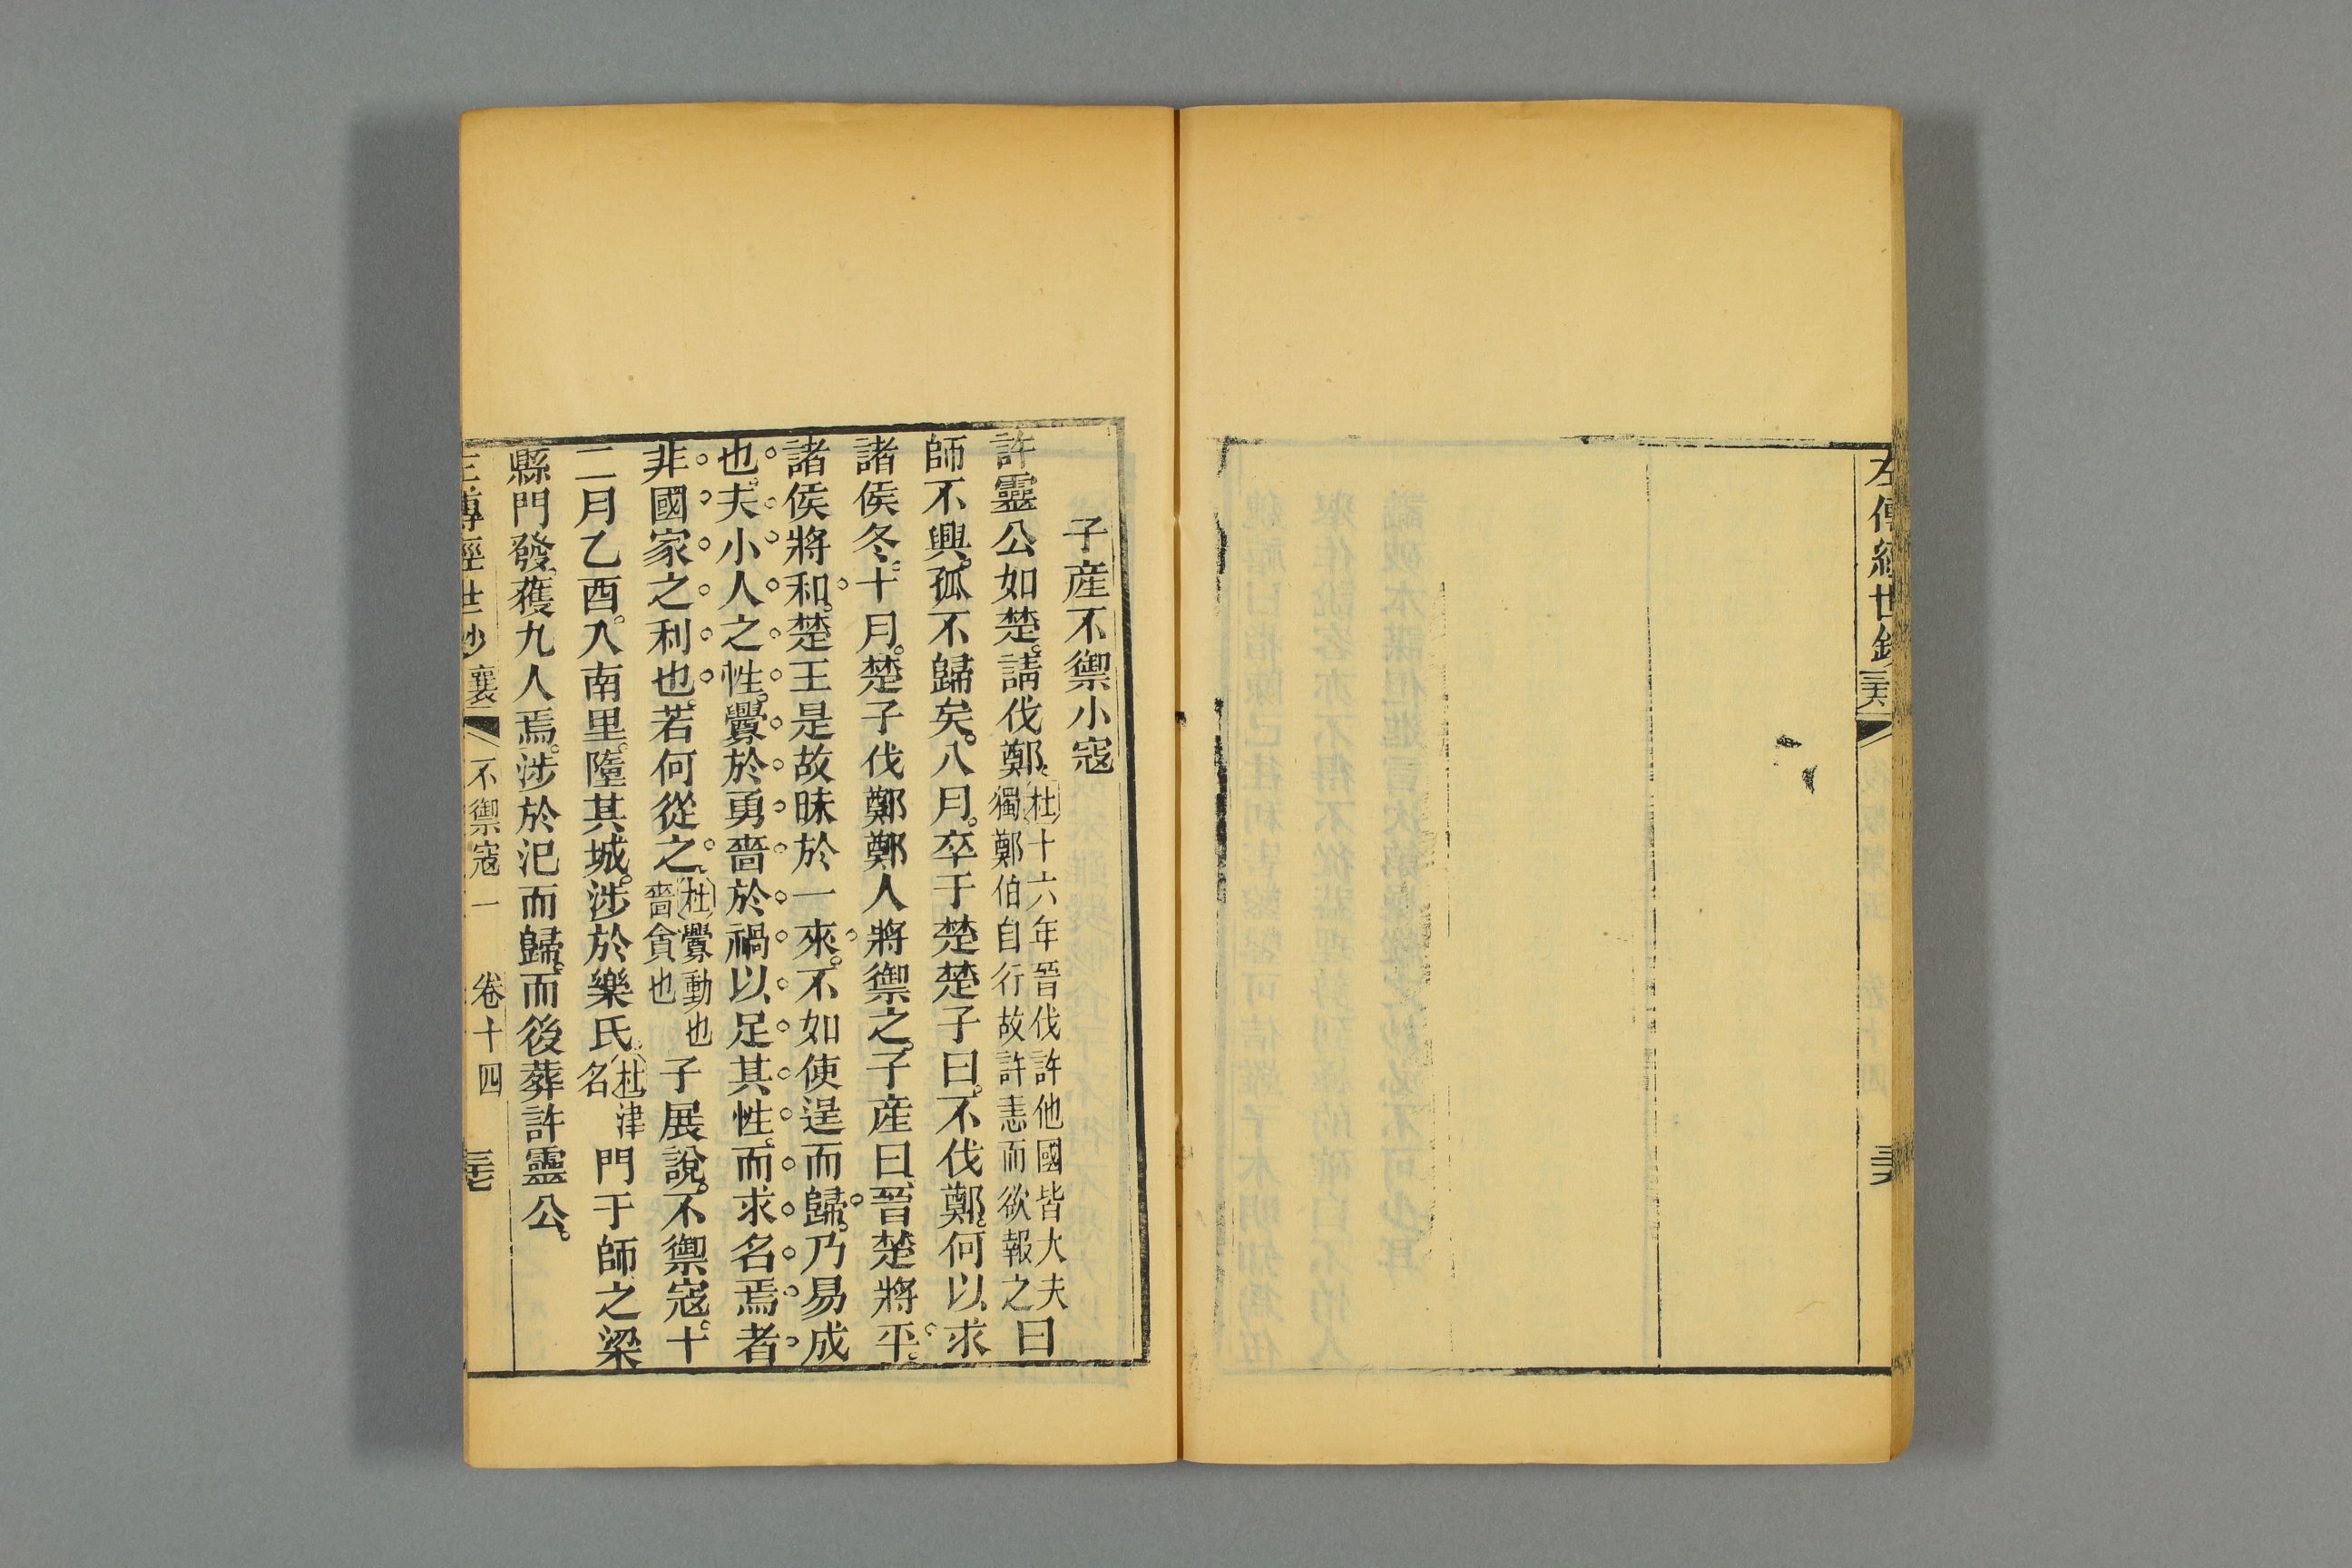 左傳經世鈔
子産不禦小寇
許靈公如楚。請伐鄭。杜十六年晉伐許他國皆大夫獨鄭伯自行故許恚而欲報之曰
師不興。孤不歸矣。八月。卒于楚楚子曰。不伐鄭。何以求
諸侯冬。十月。楚子伐鄭鄭人將禦之。子産曰、晉楚將平。
諸侯將和。楚王是故昧於一來。不如使逞而歸。乃易成
也。夫小人之性。釁於勇嗇於禍以足其性。而求名焉者
非國家之利也。若何從之。杜釁動也嗇貪也子展說。不禦寇。十
二月乙酉。入南里。墮其城。涉於樂氏杜津名門于師之梁
縣門發。獲九人焉。涉於汜而歸。而後葬許靈公。
左傳經世鈔 襄 不禦寇一 卷十四